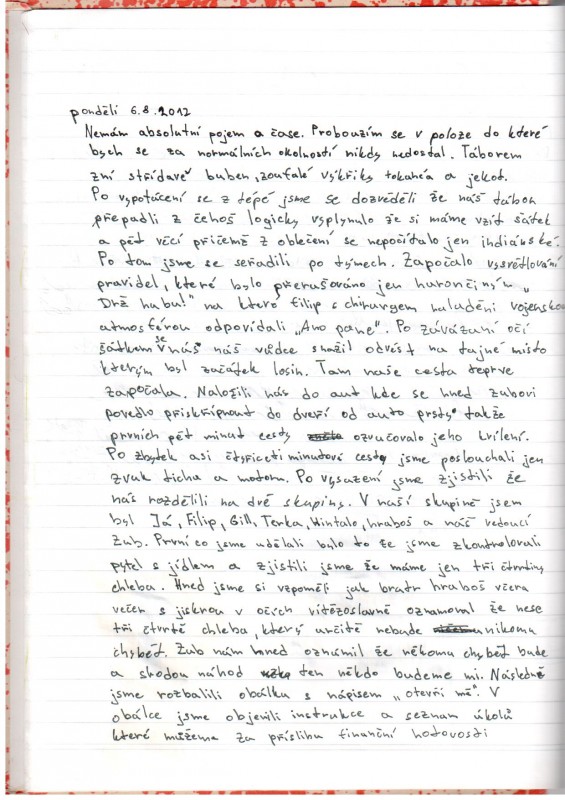 pondělí 6.8.2012
Nemám absolutní pojem o čase. Probouzím se v poloze do které
bych se za normálních okolností nikdy nedostal. Táborem
zní střídavě buben, zoufalé výkřiky tokanca a jekot.
Po vypotácení se z tépé jsme se dozvěděli že náš tábor
přepadli z čehož logicky vyplynulo že si máme vzít šátek
a pět věcí přičemž z oblečení se nepočítalo jen indiánské.
Po tom jsme se seřadili po týmech. Započalo vysvětlování
pravidel, které bylo přerušováno jen hurončiným „
Drž hubu!" na které filip s chirurgem naladěni vojenskou
atmosférou odpovídali „Ano pane". Po zavázaní očí
šátkem se nás náš vůdce snažil odvést na tajné místo
kterým byl začátek losin. Tam naše cesta teprve
započala. Naložili nás do aut kde se hned zubovi
povedlo přiskřípnout do dveří od auto prsty takže
prvních pět minut cesty ozvučovalo jeho kvílení.
Po zbytek asi čtyřiceti minutové cesty jsme poslouchali jen
zvuk ticha a motoru. Po vysazení jsme zjistili že
nás rozdělili na dvě skupiny. V naší skupině jsem
byl Já, Filip, Gill, Terka, Wintalo, hraboš a náš vedoucí
Zub. První co jsme udělali bylo to že jsme zkontrolovali
pytel s jídlem a zjistili jsme že máme jen tři čtvrtiny
chleba. Hned jsme si vzpoměli jak bratr hraboš včera
večer s jiskrou v očích vítězoslavně oznamoval že nese
tři čtvrtě chleba, který určitě nebude nikomu
chybět. Zub nám hned oznámil že někomu chybět bude
a shodou náhod ten někdo budeme mi. Následně
jsme rozbalili obálku s nápisem „otevři mě". V
obálce jsme objevili instrukce a seznam úkolů
které můžeme za příslibu finanční hotovosti